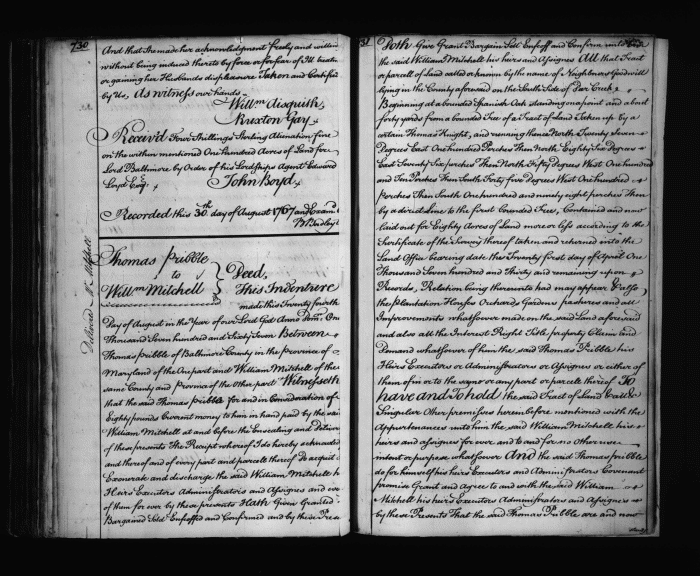 730
And that she made her acknowledgment freely and willin
without being induced thereto by force or for fear of Ill treatm
or gaining her Husbands displeasure Taken and Certified
by Us, As witness our hands
Willm Aisquith
Ruxton Gay
Received Four Shillings Sterling Alienation fine
on the within mentioned One Hundred Acres of Land for
Lord Baltimore by Order of his Lordships Agent Edward
Loyd Esqr. John Boyd
Recorded this 30th day of August 1767 and Exam
Delivered Wm Mitchell
Thomas Pribble
to
Willm Mitchell
Deed,
This Indenture
made this Twenty fourth
Day of August in the Year of our Lord God Anno Dom: One
Thousand Seven hundred and Sixty Seven Between
Thomas Pribble of Baltimore County in the province of
Maryland of the One part and William Mitchell of the
same County and Province of the other part Witnesseth
that the said Thomas pribble for and in Consideration of
Eighty pounds Currant money to him in hand paid by the said
William Mitchell at and before the Ensealing and Deliver
of these presents The Receipt whereof I do hereby acknowled
and thereof and of every part and parcell thereof Do acquit
Exonerate and discharge the said William Mitchell h
Heirs Executors Administrators and Assignes and eve
of them for ever by these presents Hath Given Granted
Bargained Sold Enfeoffed and Confirmed and by these Pres
31
Doth Give Grant Bargain Sell Enfeoff and Confirm unto
the said William Mitchell his heirs and Assignes All that Tract
or parcel of Land called or known by the name of Neighbours Goodwill
lying in the County aforesaid on the South Side of Deer Creek
Beginning at a bounded Spanish Oak standing on a point and about
forty yards from a bounded Tree of a Tract of Land Taken up by a
certain Thomas Knight, and running thence North Twenty Seven
Degrees East One hundred Porches Then North Eighty Six Degrees
East Seventy Six porches Then North Fifty Degrees West One hundred
and Ten Porches Then South Forty five Degrees West One hundred
porches Then South One hundred and ninety eight porches Then
by a direct Line to the first bounded Tree, Contained and now
laid out for Eighty Acres of Land more or less according to the
Certificate of the Survey thereof taken and returned into the
Land Office bearing date the Twenty first day of April One
Thousand Seven hundred and Thirty and remaining upon
Records, Relation being thereunto had may appear & also
the plantation Houses Orchards Gardens pastures and all
Improvements whatsoever made on the said Land aforesaid
and also all the Interest Right Title property Claim and
Demand whatsoever of him the said Thomas Pribble his
Heirs Executors or Administrators or Assignes or either of
them of in or to the same or any part or parcele thereof To
have and To hold the said Tract of Land & all &
Singular Other premisses herein before mentioned with the
Appurtenances unto him the said William Mitchell his
heirs and assignes for ever and to and for no other use
intent or purpose whatsoever And the said Thomas pribble
do for himself his heirs Executors and Administrators Covenant
promise Grant and Agree to and with the said William
Mitchell his heirs Executors Administrators and Assignes
by these Presents That the said Thomas Pribble are and now